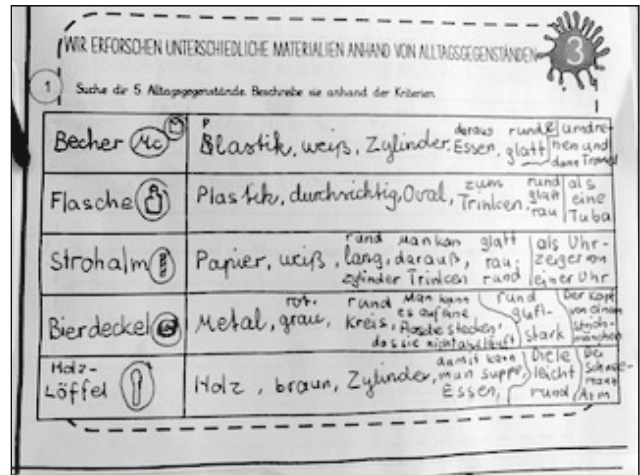 WIR ERFORSCHEN UNTERSCHIEDLICHE MATERIALIEN ANHAND VON ALLTAGSGEGENSTÄNDEN
3
1 Suche dir 5 Alltagsgegenstände. Beschreibe sie anhand der Kriterien.
Becher Mc
Plastik, weiß, Zylinder, daraus Essen, rund & glatt
umdrehen und dann
Flasche
Plastik, durchsichtig, Oval, zum Trinken, rund glatt rau
als eine Tuba
Strohalm
Papier, weiß, rund lang, zylinder
Man kan darauß, Trinken
glatt rau, rund
als Uhr-
zeiger von
einer Uhr
Bierdeckel
Metal, rot, grau, rund Kreis,
Man kann es auf eine stecken,
das sie nicht
rund
stark
Der Kopf
von einem
Holz-
Löffel
Holz, braun, Zylinder, damit kann man suppe Essen,
leicht
rund
Arm